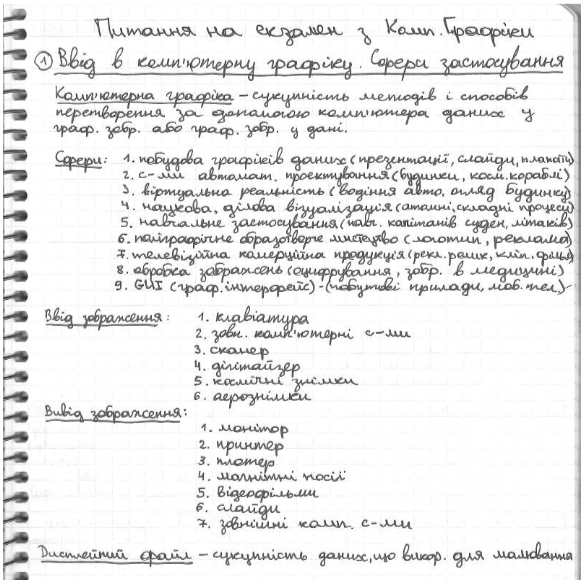 Питання на екзамен з Комп. Графіки
① Ввід в комп'ютерну графіку. Сфери застосування
Комп'ютерна графіка – сукупність методів і способів
перетворення за допомогою комп'ютера даних у
граф. зобр. або граф. зобр. у дані.
Сфери: 1. побудова графіків даних (презентації, слайди, плакати)
2. с-ми автомат. проектування (будинки, косм. кораблі)
3. віртуальна реальність (водіння авто, огляд будинку)
4. наукова, ділова візуалізація (атомні, складні процеси)
5. навчальне застосування (навч. капітанів суден, літаків)
6. поліграфічне образотворче мистецтво (логотип, реклама)
7. телевізійна комерційна продукція (рекл. ролик, кліп, фільм)
8. обробка зображень (оцифрування, зобр. в медицині)
9. GUI (граф. інтерфейс) - (побутові прилади, моб. тел.)
Ввід зображення: 1. клавіатура
2. зовн. комп'ютерні с-ми
3. сканер
4. дігітайзер
5. космічні знімки
6. аерознімки
Вивід зображення:
1. монітор
2. принтер
3. плотер
4. магнітні носії
5. відеофільми
6. слайди
7. зовнішні комп. с-ми
Дисплейний файл – сукупність даних, що викор. для малювання